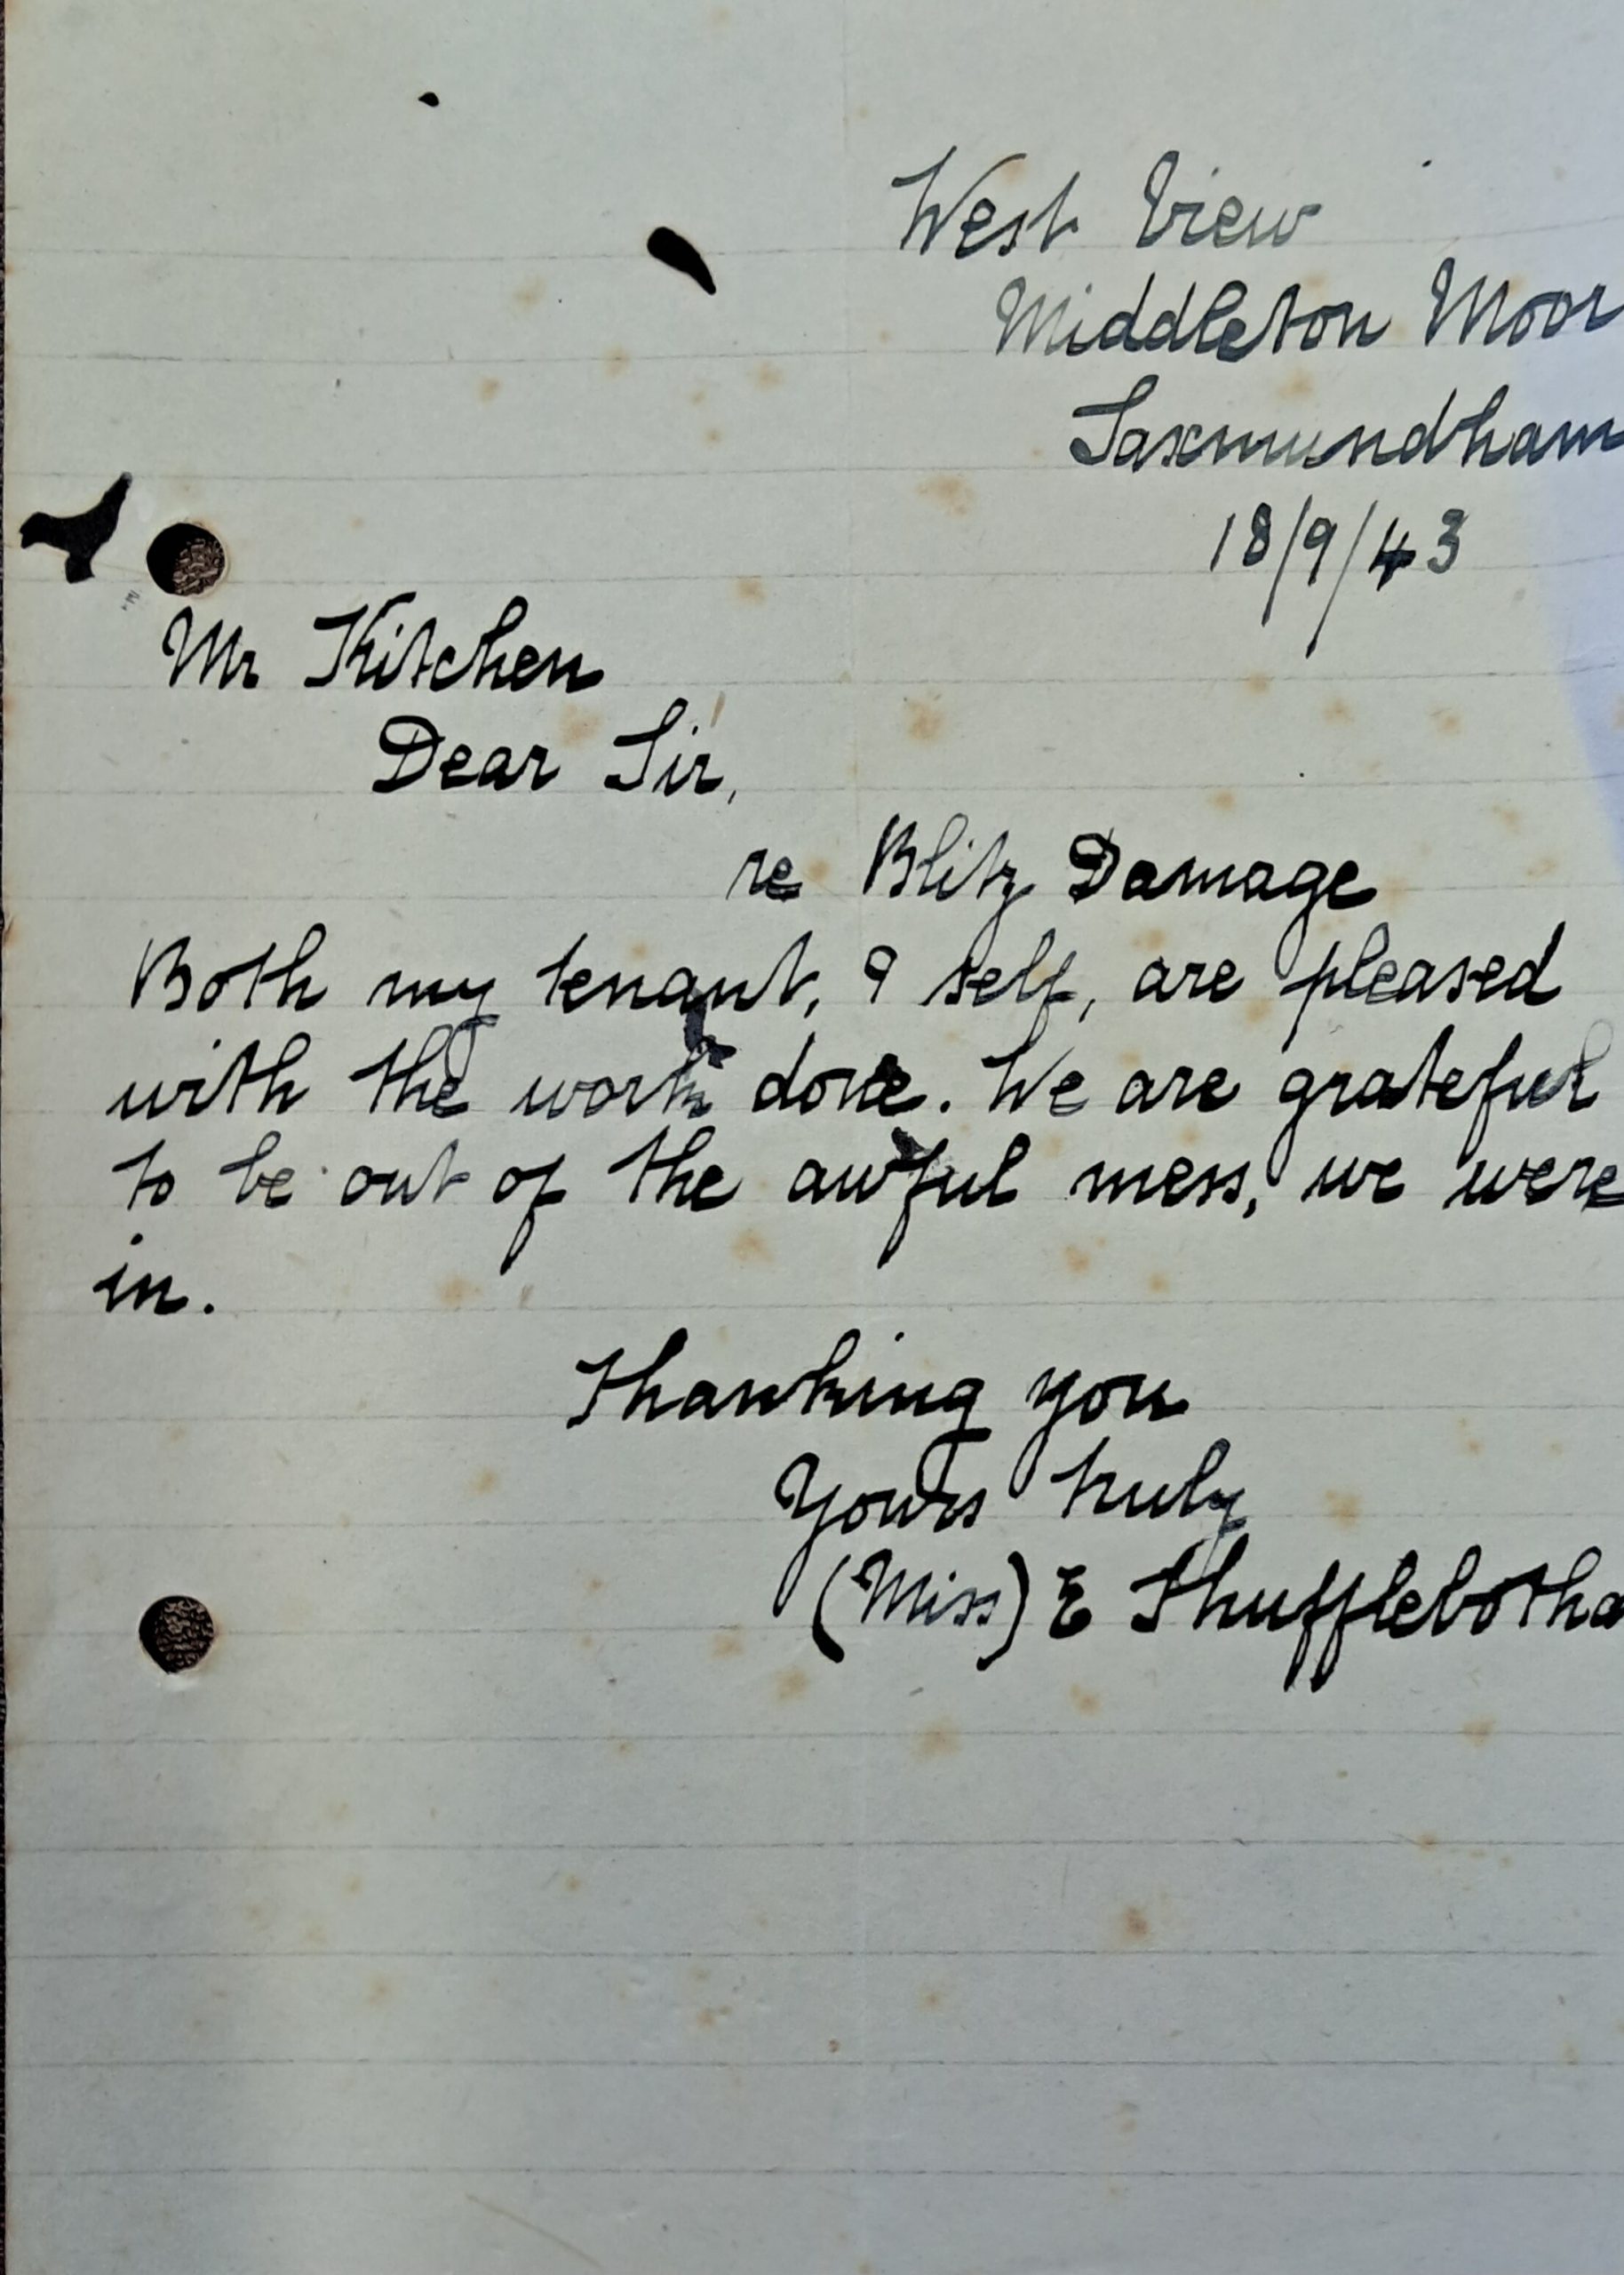 West View
Middleton Moor
Saxmundham
18/9/43
Mr Kitchen
Dear Sir,
re Blitz Damage
Both my tenant, & self, are pleased
with the work done. We are grateful
to be out of the awful mess, we were
in.
Thanking you
Yours truly
(Miss) E Shufflebotha